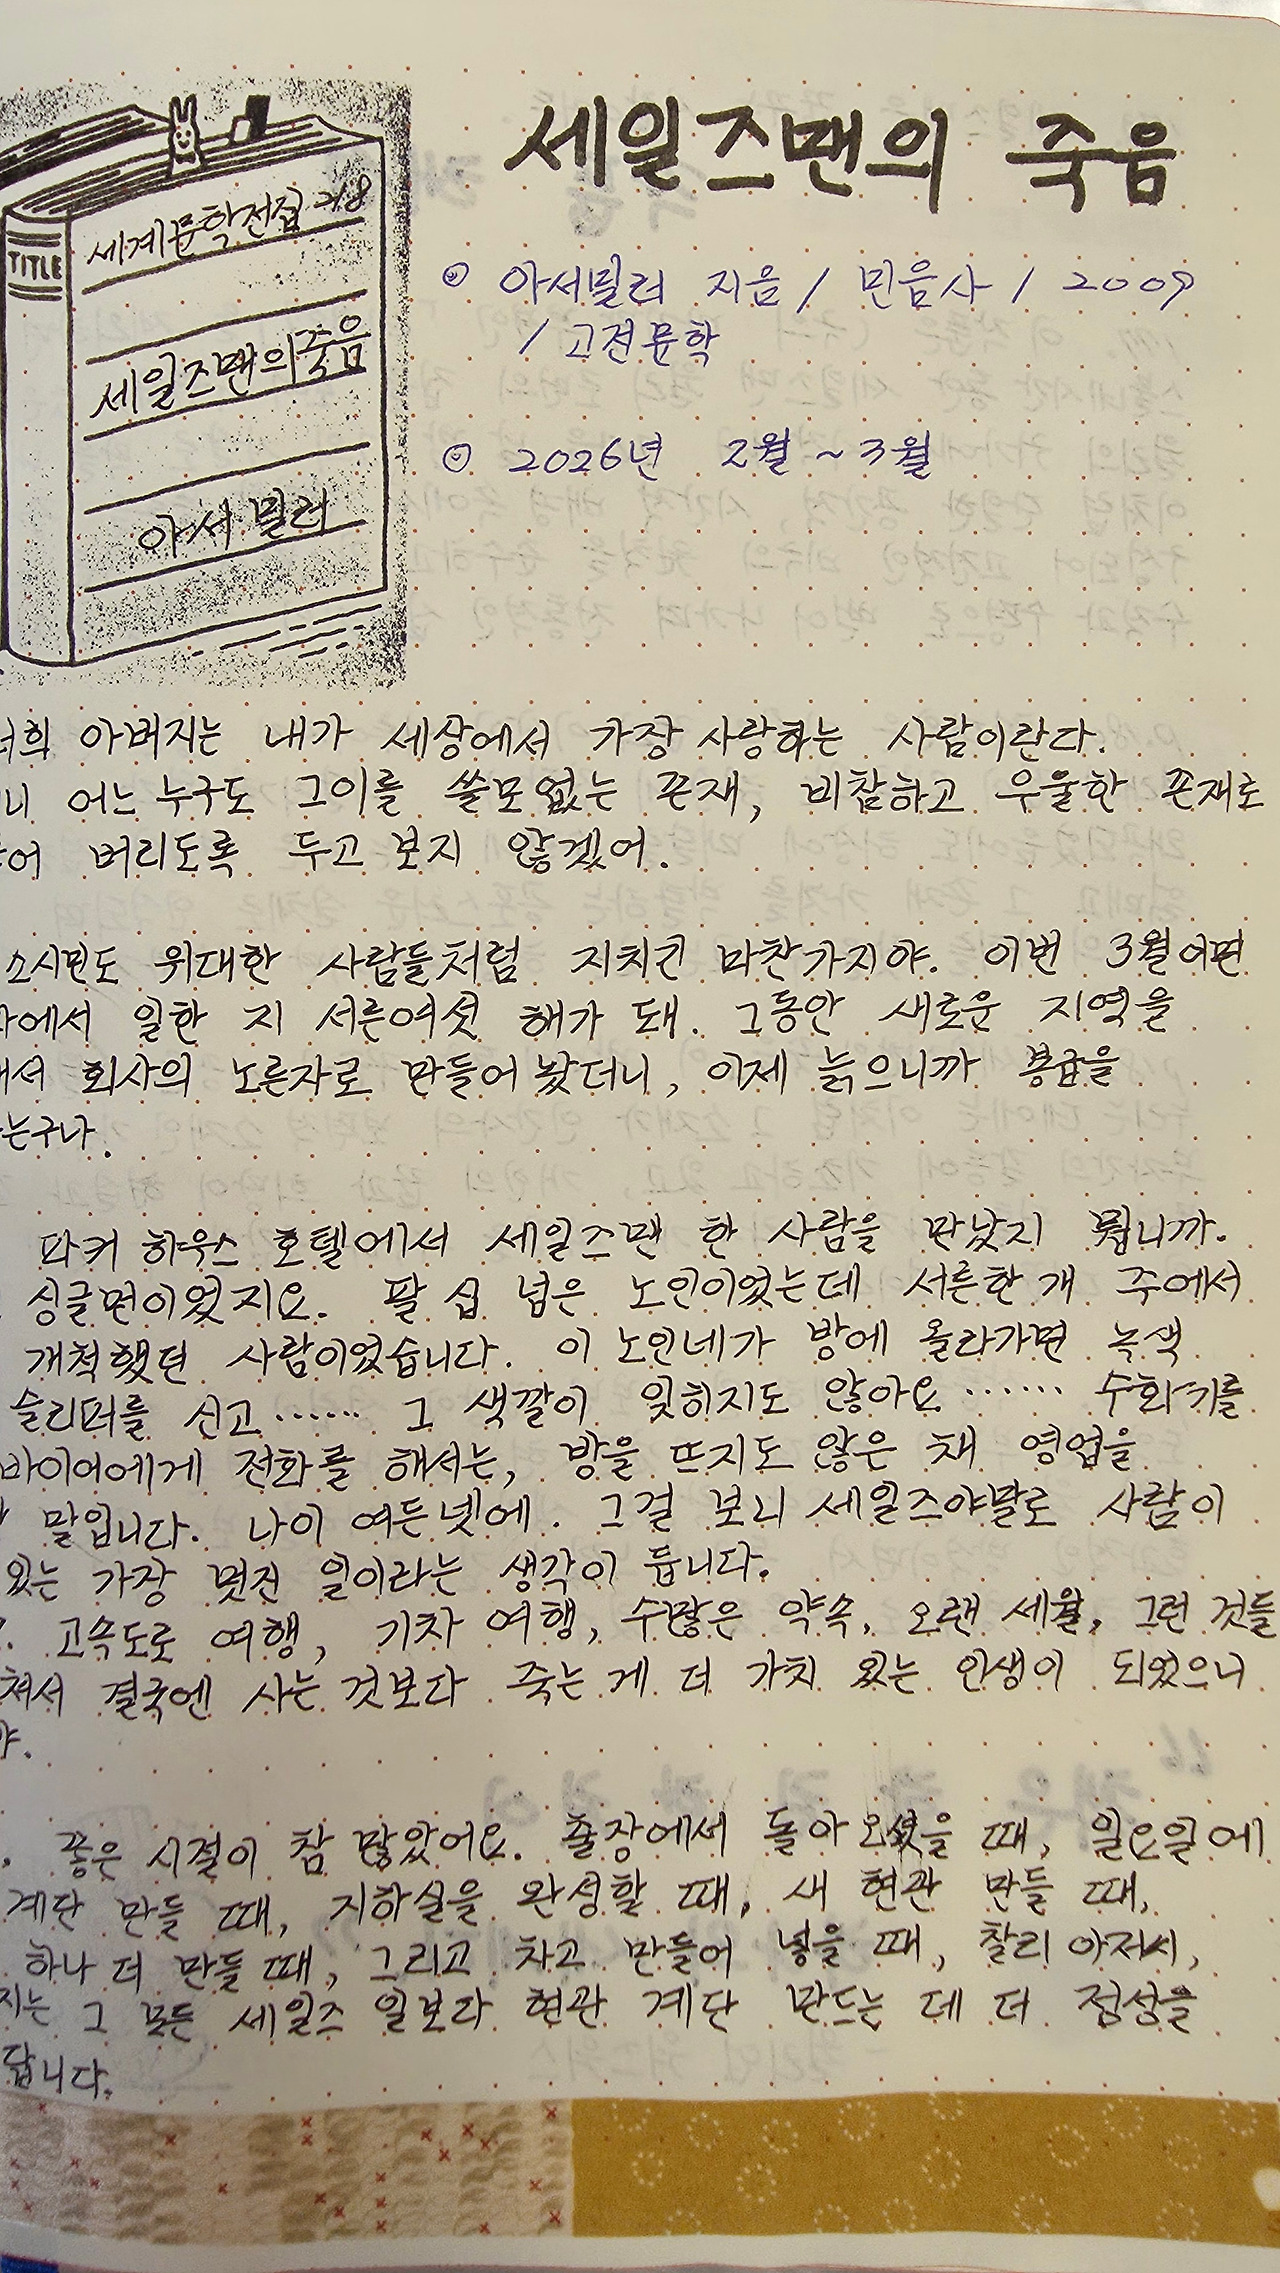 세일즈맨의 죽음
TITLE
세계문학전집 218
세일즈맨의 죽음
아서 밀러
아서밀러 지음 / 민음사 / 2009
/ 고전문학
2026년 2월 ~ 3월
너희 아버지는 내가 세상에서 가장 사랑하는 사람이란다.
니 어느 누구도 그이를 쓸모없는 존재, 비참하고 우울한 존재로
어 버리도록 두고 보지 않겠어.
소시민도 위대한 사람들처럼 지치긴 마찬가지야. 이번 3월이면
에서 일한 지 서른여섯 해가 돼. 그동안 새로운 지역을
서 회사의 노른자로 만들어 놨더니, 이제 늙으니까 봉급을
는구나.
파커 하우스 호텔에서 세일즈맨 한 사람을 만났지 뭡니까.
싱글먼이었지요. 팔 십 넘은 노인이었는데 서른한 개 주에서
개척했던 사람이었습니다. 이 노인네가 방에 올라가면 녹색
슬리퍼를 신고…… 그 색깔이 잊히지도 않아요…… 수화기를
바이어에게 전화를 해서는, 방을 뜨지도 않은 채 영업을
말입니다. 나이 여든넷에. 그걸 보니 세일즈야말로 사람이
있는 가장 멋진 일이라는 생각이 듭니다.
. 고속도로 여행, 기차 여행, 수많은 약속, 오랜 세월, 그런 것들
쳐서 결국엔 사는 것보다 죽는 게 더 가치 있는 인생이 되었으니
야.
. 좋은 시절이 참 많았어요. 출장에서 돌아 오셨을 때, 일요일에
계단 만들 때, 지하실을 완성할 때, 새 현관 만들 때,
하나 더 만들 때, 그리고 차고 만들어 넣을 때, 찰리 아저씨,
지는 그 모든 세일즈 일보다 현관 계단 만드는 데 더 정성을
답니다.